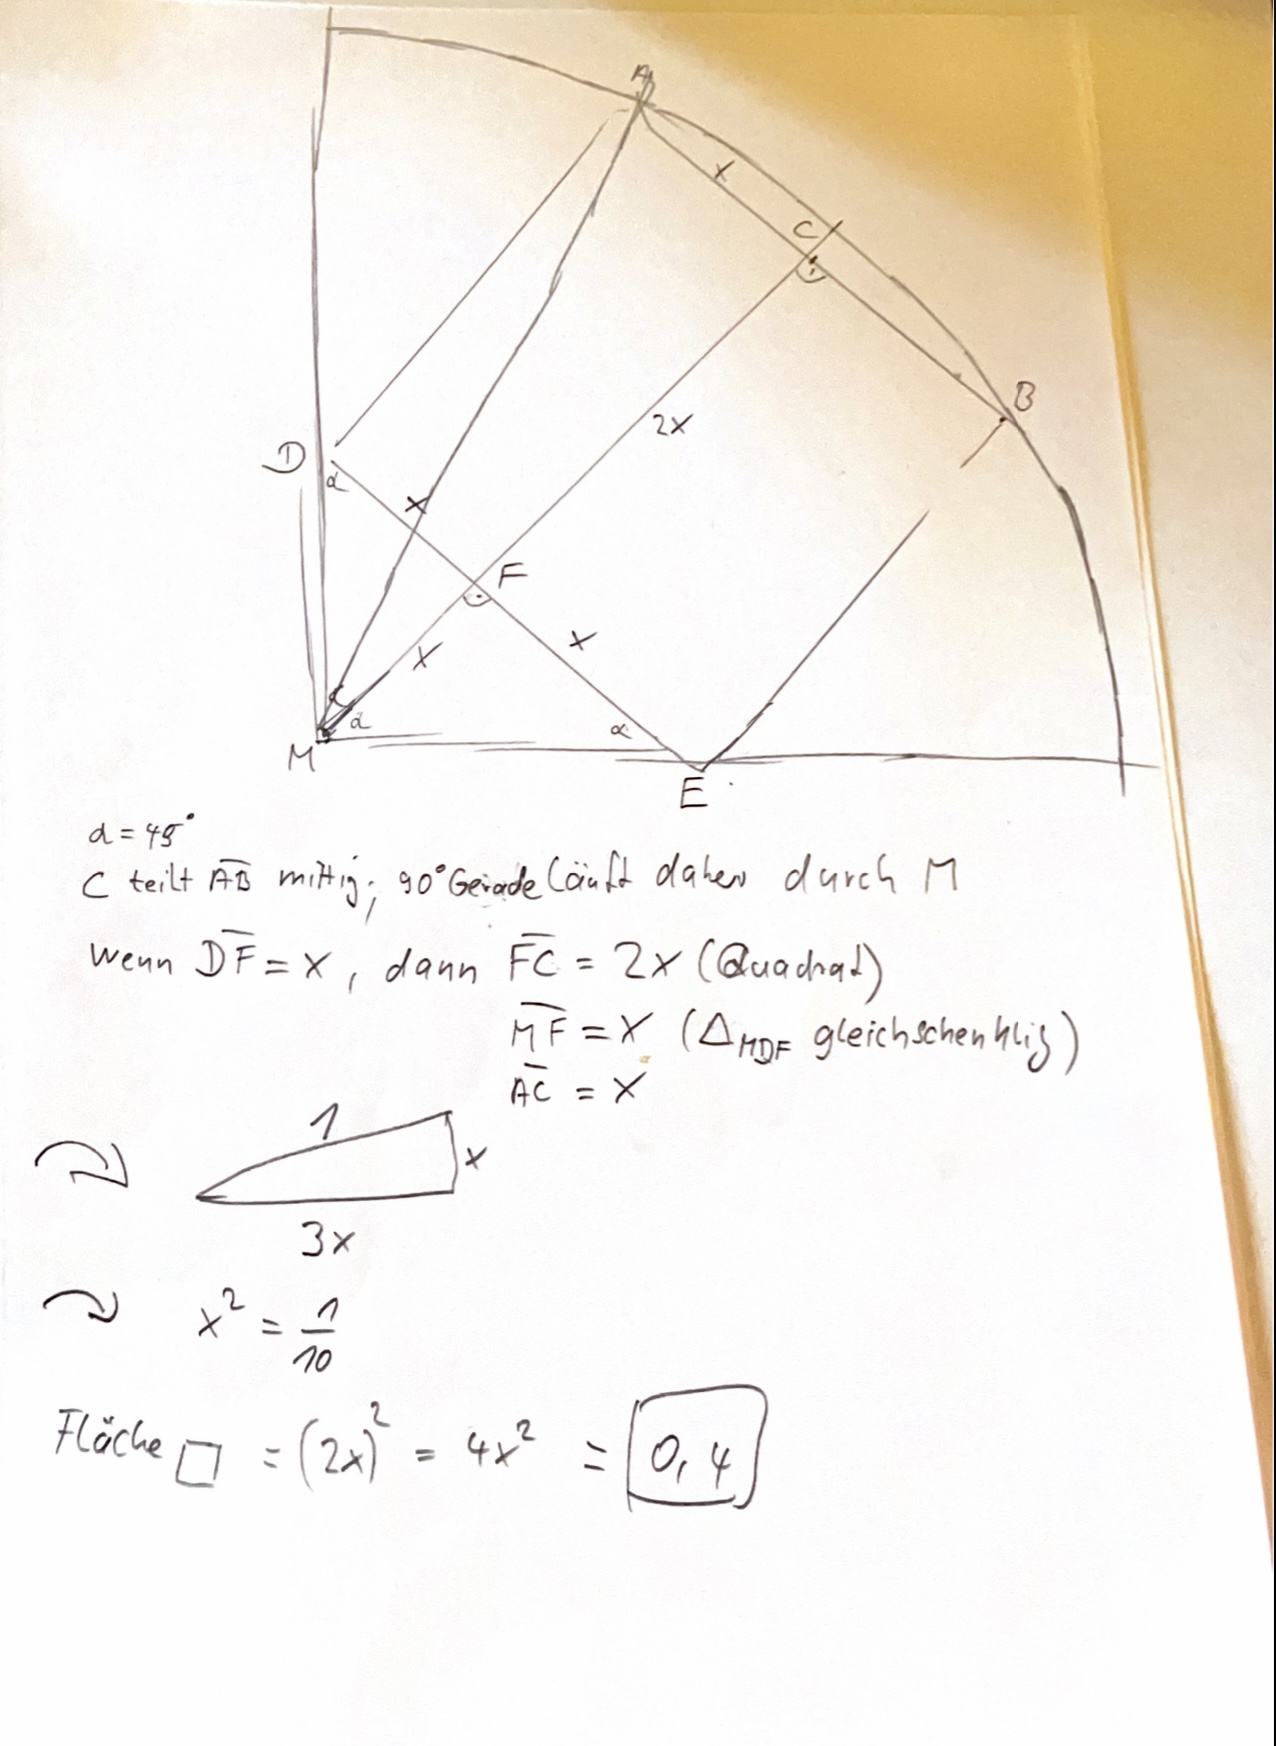 A
x
C
B
2x
D
α
x
F
x
x
α
α
M
E
α = 45°
C teilt A̅B̅ mittig; 90° Gerade läuft daher durch M
wenn D̅F̅ = x, dann F̅C̅ = 2x (Quadrat)
M̅F̅ = x (△MDF gleichschenklig)
A̅C̅ = x
1
x
3x
x² = 1/10
Fläche □ = (2x)² = 4x² = 0,4